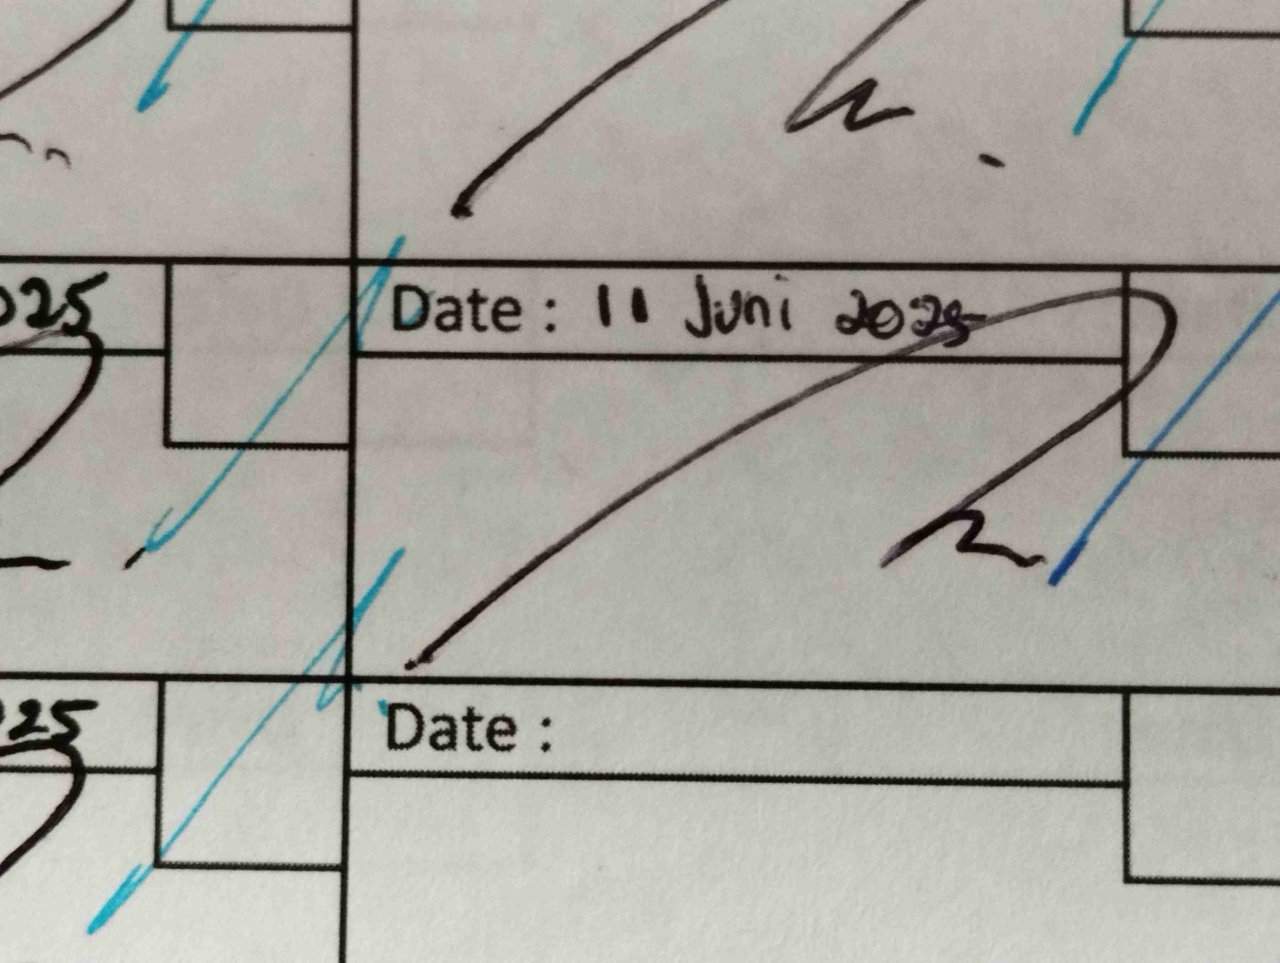 025
Date : 11 Juni 2025
025
Date :